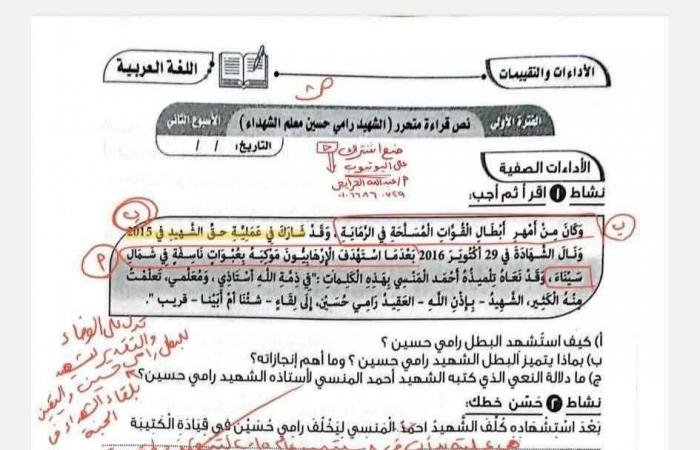 اللغة العربية
الأداءات والتقييمات
ص ٨
الفترة الأولى نص قراءة متحرر (الشهيد رامي حسين معلم الشهداء) الأسبوع الثاني
التاريخ: / /
على اليوتيوب
الأداءات الصفية
نشاط ١ اقرأ ثم أجب:
وَكَانَ مِنْ أَمْهَرِ أَبْطَالِ الْقُوَّاتِ الْمُسَلَّحَةِ فِي الرِّمَايَةِ، وَقَدْ شَارَكَ فِي عَمَلِيَّةِ حَقِّ الشَّهِيدِ فِي 2015
وَنَالَ الشَّهَادَةَ فِي 29 أُكْتُوبَرَ 2016 بَعْدَمَا اسْتَهْدَفَ الْإِرْهَابِيُّونَ مَوْكِبَهُ بِعُبْوَاتٍ نَاسِفَةٍ فِي شَمَالِ
سَيْنَاءَ، وَقَدْ نَعَاهُ تِلْمِيذُهُ أَحْمَدُ الْمَنْسِي بِهَذِهِ الْكَلِمَاتِ :"فِي ذِمَّةِ اللهِ أُسْتَاذِي، وَمُعَلِّمِي، تَعَلَّمْتُ
مِنْهُ الْكَثِيرَ، الشَّهِيدُ – بِإِذْنِ اللهِ – الْعَقِيدُ رَامِي حُسَيْن، إِلَى لِقَاءٍ – شِئْنَا أَمْ أَبَيْنَا – قَرِيب ".
أ) كيف استُشهد البطل رامي حسين ؟
ب) بماذا يتميز البطل الشهيد رامي حسين ؟ وما أهم إنجازاته؟
ج) ما دلالة النعي الذي كتبه الشهيد أحمد المنسي لأستاذه الشهيد رامي حسين؟
تدل على الوفاء
والتقدير للشهيد
البطل رامي حسين واليقين
بلقاء الشهداء فى
الجنة
نشاط ٢ حَسّن خطك:
بَعْدَ اسْتِشْهَادِهِ كُلِّفَ الشَّهِيدُ أَحْمَدُ الْمَنْسِي لِيَخْلُفَ رَامِي حُسَيْن فِي قِيَادَةِ الْكَتِيبَةِ